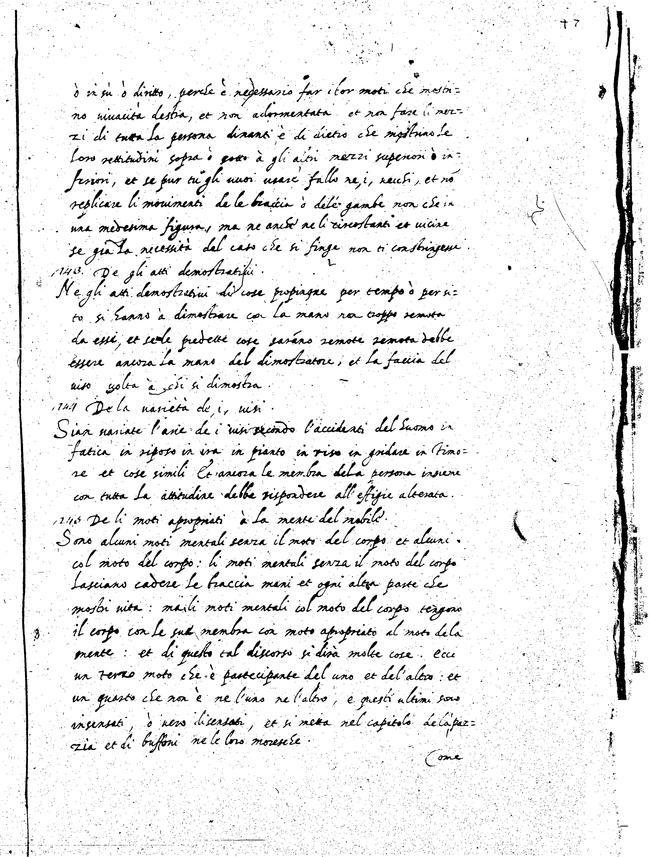 47
ò in sù ò diritto, perche è necessario far i lor moti che mostri=
no vivacità destra, et non adormentata et non fare li mez=
zi di tutta la persona dinanti è di dietro che mostrino le
loro rettitudini sopra ò sotto à gli altri mezzi superiori ò in=
feriori, et se pur tu gli vuoi usare fallo ne, i, vecchi, et nõ
replicare li movimenti de le braccia ò dele gambe non che in
una medesima figura, ma ne anche ne li circostanti et vicine
se gia la necessità del caso che si finge non ti constringesse.
.143. De gli atti demostrativi.
Ne gli atti demostrativi di cose propinque per tempo ò per si=
to si hanno à dimostrare con la mano non troppo remota
da esse, et se le predette cose sarãno remote remota debbe
essere ancora la mano del dimostratore, et la faccia del
viso volta à chi si dimostra.
.144 De la varietà de, i, visi.
Sian variate l'arie de i visi secondo l'accidenti del huomo in
fatica in riposo in ira in pianto in riso in gridare in timo=
re et cose simili Et ancora le membra dela persona insieme
con tutta la attitudine debbe rispondere all'effigie alterata.
.145 De li moti apropriati à la mente del mobile.
Sono alcuni moti mentali senza il moto del corpo et alcuni
col moto del corpo: li moti mentali senza il moto del corpo
lasciano cadere le braccia mani et ogni altra parte che
mostri vita: ma li moti mentali col moto del corpo tengono
il corpo con le sue membra con moto apropriato al moto dela
mente: et di questo tal discorso si dirà molte cose. ecci
un terzo moto che è partecipante del uno et del'altro: et
un quarto che non è ne l'uno ne l'altro, e questi ultimi sono
insensati, ò vero disensati, et si metta nel capitolo de la paz=
zia et di buffoni ne le loro moresche.
Come